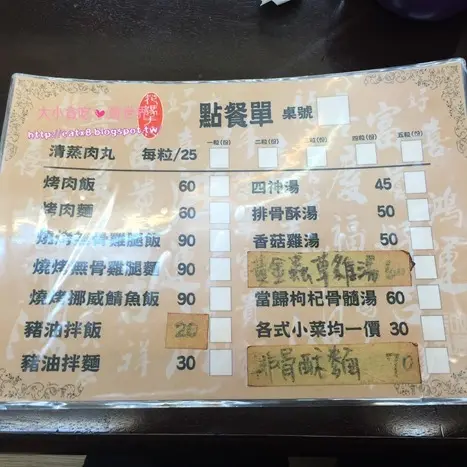 大小食吃
http://eatx8.blogspot.tw
點餐單 桌號
清蒸肉丸 每粒/25 一粒(份) 二粒(份) 三粒(份) 四粒(份) 五粒(份)
烤肉飯 60
烤肉麵 60
燒烤無骨雞腿飯 90
燒烤無骨雞腿麵 90
燒烤挪威鯖魚飯 90
豬油拌飯 20
豬油拌麵 30
四神湯 45
排骨酥湯 50
香菇雞湯 50
黃金蟲草雞湯
當歸枸杞骨髓湯 60
各式小菜均一價 30
排骨酥麵 70